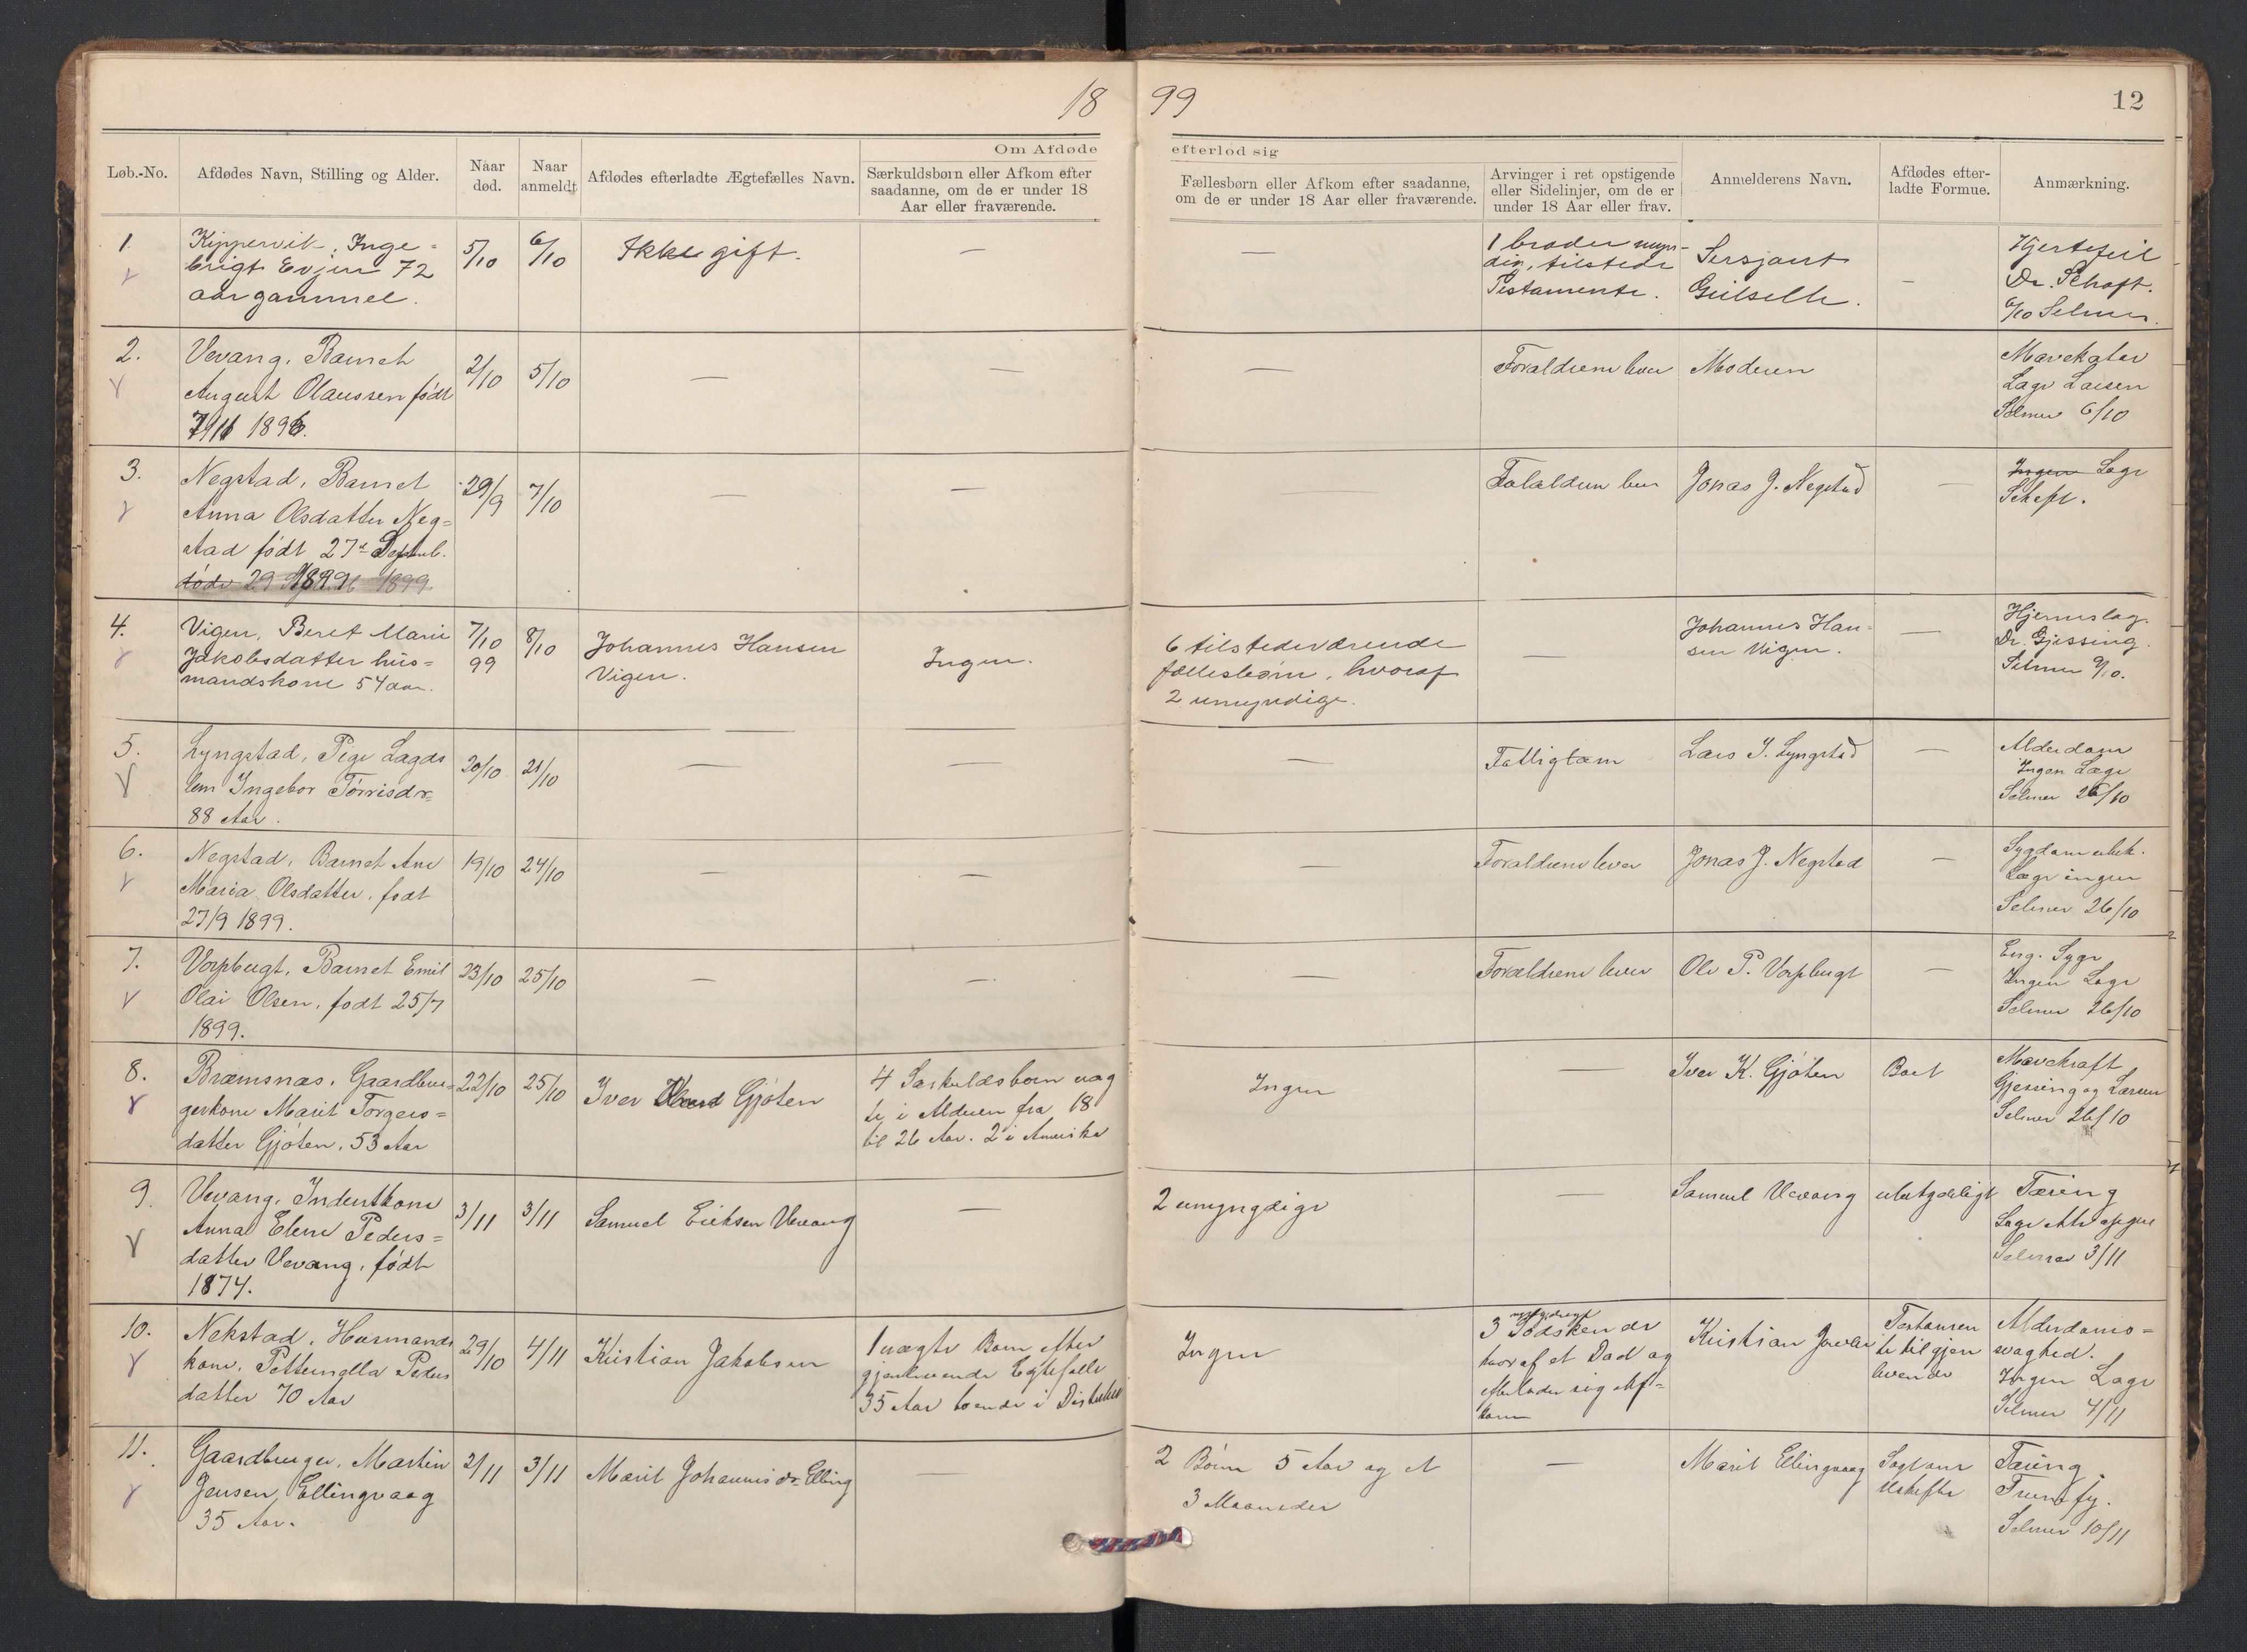 18 99
12
Om Afdøde efterlod sig
Løb.-No.
Afdødes Navn, Stilling og Alder.
Naar død.
Naar anmeldt
Afdødes efterladte Ægtefælles Navn.
Særkuldsbørn eller Afkom efter
saadanne, om de er under 18
Aar eller fraværende.
Fællesbørn eller Afkom efter saadanne,
om de er under 18 Aar eller fraværende.
Arvinger i ret opstigende
eller Sidelinjer, om de er
under 18 Aar eller frav.
Anmelderens Navn.
Afdødes efter-
ladte Formue.
Anmærkning.
1.
Kippervik, Inge-
brigt Evjen 72
aar gammel.
5/10
6/10
Ikke gift.
—
—
1 broder myn-
dig, tilstede
Testamente.
Sersjant
—
Hjertefeil
Dr.
6/10 Selmer.
2.
Vevang, Barnet
August Olaussen født
1896.
2/10
5/10
—
—
—
Forældrene lever
Moderen
Mavekatar
Læge Larsen
Selmer 6/10
3.
Negstad, Barnet
Anna Olsdatter Neg-
stad født 27d Septemb.
døde 29 1899
29/9
7/10
—
—
—
lever
Jonas J. Negstad
—
Ingen Læge
4.
Vigen, Beret Marie
Jakobsdatter hus-
mandskone 54 aar.
7/10
99
8/10
Johannes Hansen
Vigen.
Ingen.
6 tilstedeværende
fællesbørn, hvoraf
2 umyndige.
—
Johannes Han-
sen Vigen.
—
Hjerneslag.
Dr. Gjessing.
Selmer 9/10.
5.
Lyngstad, Pige Lægds
lem Ingebor Tørrisdr
88 Aar.
20/10
21/10
—
—
—
Fattiglæm
Lars J. Lyngstad
—
Alderdom
Ingen Læge
Selmer 26/10
6.
Negstad, Barnet Ane
Maria Olsdatter, født
27/9 1899.
19/10
24/10
—
—
—
Forældrene lever
Jonas J. Negstad
—
Sygdom ubek.
Læge ingen
Selmer 26/10
7.
Vorpbugt, Barnet Emil
Olai Olsen, født 25/7
1899.
23/10
25/10
—
—
—
Forældrene lever
Ole P. Vorpbugt
—
Eng. Syge
Ingen Læge
Selmer 26/10
8.
Bræmsnæs, Gaardbru-
gerkone Marit Torgers-
datter Gjøten, 53 Aar
22/10
25/10
Iver Gjøten
4 Særkuldsbørn
te i Alderen fra 18
til 26 Aar. 2 i Amerika
Ingen
—
Iver K. Gjøten
Boet
Mavekræft
Gjessing og Larsen
Selmer 26/10
9.
Vevang, Inderstkone
Anna Elene Peders-
datter Vevang, født
1874.
3/11
3/11
Samuel Eriksen Vevang
—
2 umyngdige
—
Samuel Vevang
ubetydeligt
Tæring
Læge
Selmer 3/11
10.
Nekstad, Husmands
kone, Petternella Peders
datter 70 Aar
29/10
4/11
Kristian Jakobsen
1 uægte Barn efter
gjenlevende Egtefælle
35 Aar boende i
Ingen
3 Sødskende
hvoraf et Død og
efterlader sig Af-
kom
Kristian
Testamen
te til gjen
levende
Alderdoms-
svaghed.
Ingen Læge
Selmer 4/11
11.
Gaardbruger, Martin
Jensen, Ellingvaag
35 Aar.
2/11
3/11
Marit Johannisdr Elling
—
2 Børn 5 Aar og et
3 Maaneder
—
Marit Ellingvaag
Søgt om
Uskifte
Tæring
Selmer 10/11